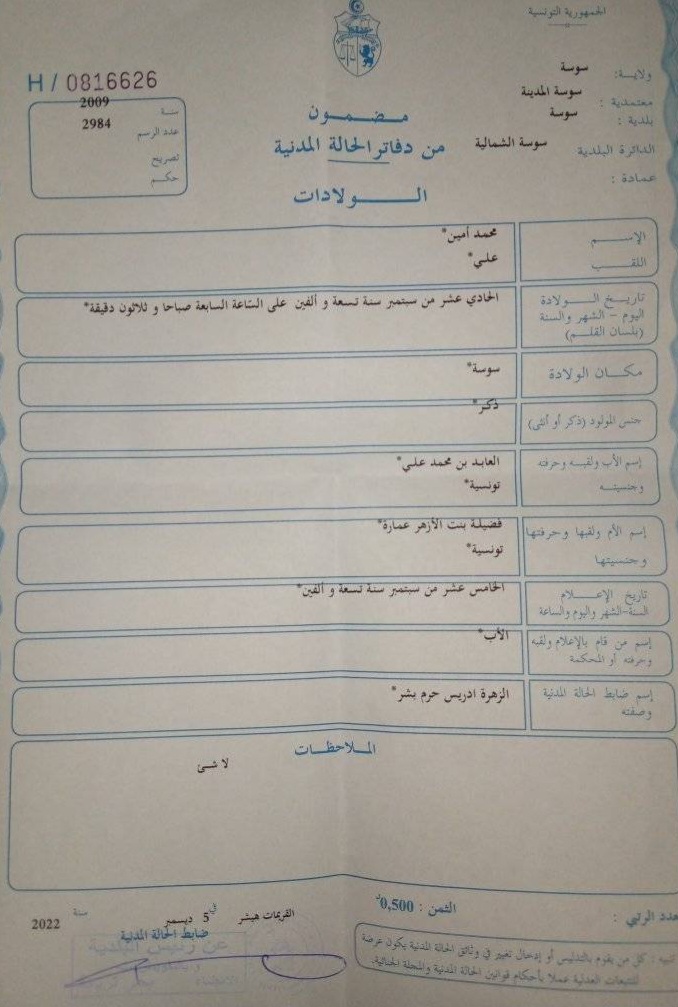 الجمهورية التونسية
ولاية: سوسة
معتمدية : سوسة المدينة
بلدية : سوسة
الدائرة البلدية سوسة الشمالية
عمادة :
H / 0816626
سنة 2009
عدد الرسم 2984
تصريح
حكم
مضمون
من دفاتر الحالة المدنية
الولادات
الإسم محمد أمين*
اللقب علي*
تاريخ الولادة الحادي عشر من سبتمبر سنة تسعة و ألفين على الساعة السابعة صباحا و ثلاثون دقيقة*
اليوم - الشهر والسنة
(بلسان القلم)
مكان الولادة سوسة*
جنس المولود (ذكر أو أنثى) ذكر*
إسم الأب ولقبه وحرفته العابد بن محمد علي*
وجنسيته تونسية*
إسم الأم ولقبها وحرفتها فضيلة بنت الأزهر عمارة*
وجنسيتها تونسية*
تاريخ الإعلام الخامس عشر من سبتمبر سنة تسعة و ألفين*
السنة-الشهر واليوم والساعة
إسم من قام بالإعلام ولقبه الأب*
وحرفته أو المحكمة
إسم ضابط الحالة المدنية الزهرة ادريس حرم بشر*
وصفته
الملاحظات
لا شئ
عدد الرتبي :
الثمن : 0,500د
القريمات هيشر في 5 ديسمبر سنة 2022
ضابط الحالة المدنية
عن رئيس البلدية
تنبيه : كل من يقوم بالتدليس أو إدخال تغيير في وثائق الحالة المدنية يكون عرضة
للتتبعات العدلية عملا بأحكام قوانين الحالة المدنية والمجلة الجنائية.